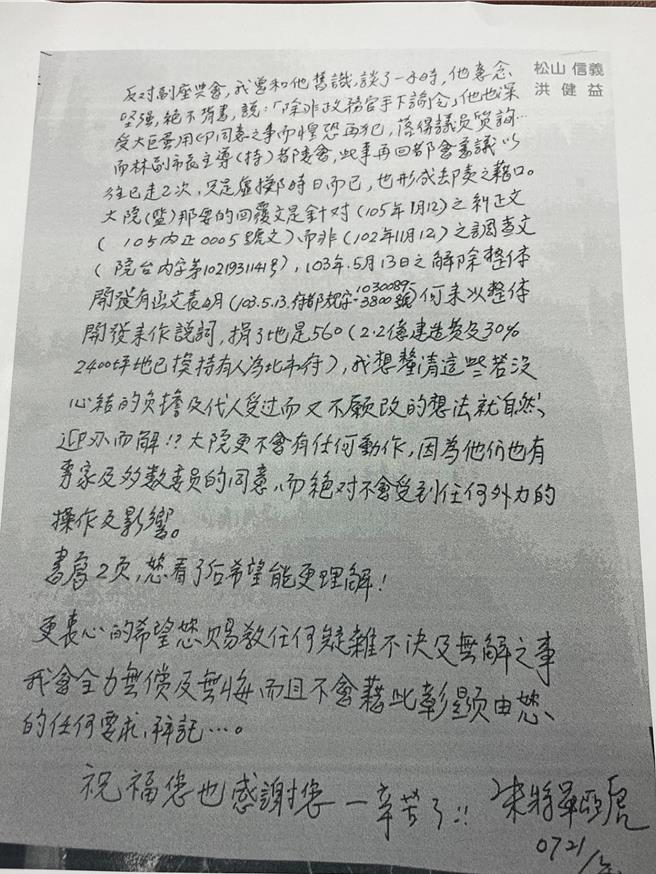 松山 信義
洪健益
反对副座與會,我曾和他舊識,談了一小時,他意念
堅强,絕不背書,說:「除非政務官手下諭令」他也深
受大巨蛋用印同意之事而惶恐再犯,落得議員質詢…
而林副市長主導(持)都委會,此事再回都會審議以
往已走2次,只是虛擲時日而已,也形成卸責之藉口。
大院(監)那要的回覆文是針对(105年1月12)之糾正文
(105內正0005號文)、而非(102年11月12)之調查文
(院台內字第1021931141号),103年.5月13日之解除整体
開發有函文表明(103.5.13.府都規字10300895-3800號)何來以整体
開發來作說詞,捐了地是560(2.2億建造費及30%
2400坪地已模持有人為北市府),我想釐清這些若沒
心結的負擔及代人受过而又不願改的想法就自然、
迎刃而解!?大院更不會有任何動作,因為他们也有
專家及多數委員的同意、而絕对不會受到任何外力的
操作及影響。
書寫2页,您看了后希望能更理解!
更衷心的希望您賜教任何疑難不決及無解之事
我會全力無償及無悔而且不會藉此彰顯由您、
的任何要求、拜託…。
祝福您也感謝您一辛苦了!!
0721